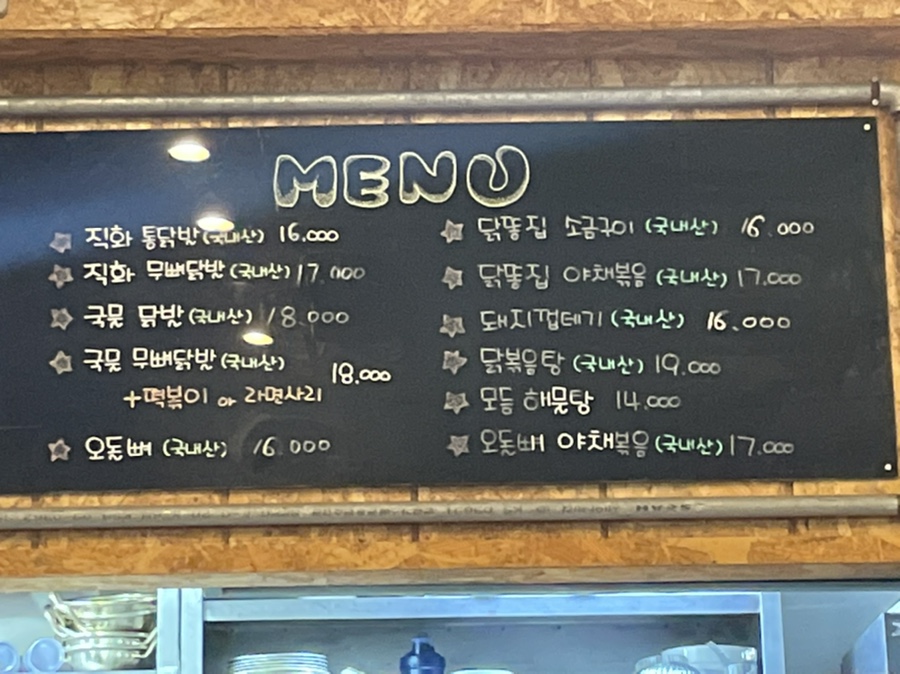 MENU
직화 통닭발(국내산) 16.000
직화 무뼈닭발(국내산) 17.000
국물 닭발(국내산) 18.000
국물 무뼈닭발(국내산) 18.000
+떡볶이 or 라면사리
오돌뼈 (국내산) 16.000
닭똥집 소금구이 (국내산) 16.000
닭똥집 야채볶음 (국내산) 17.000
돼지껍데기 (국내산) 16.000
닭볶음탕 (국내산) 19.000
모듬 해물탕 14.000
오돌뼈 야채볶음 (국내산) 17.000